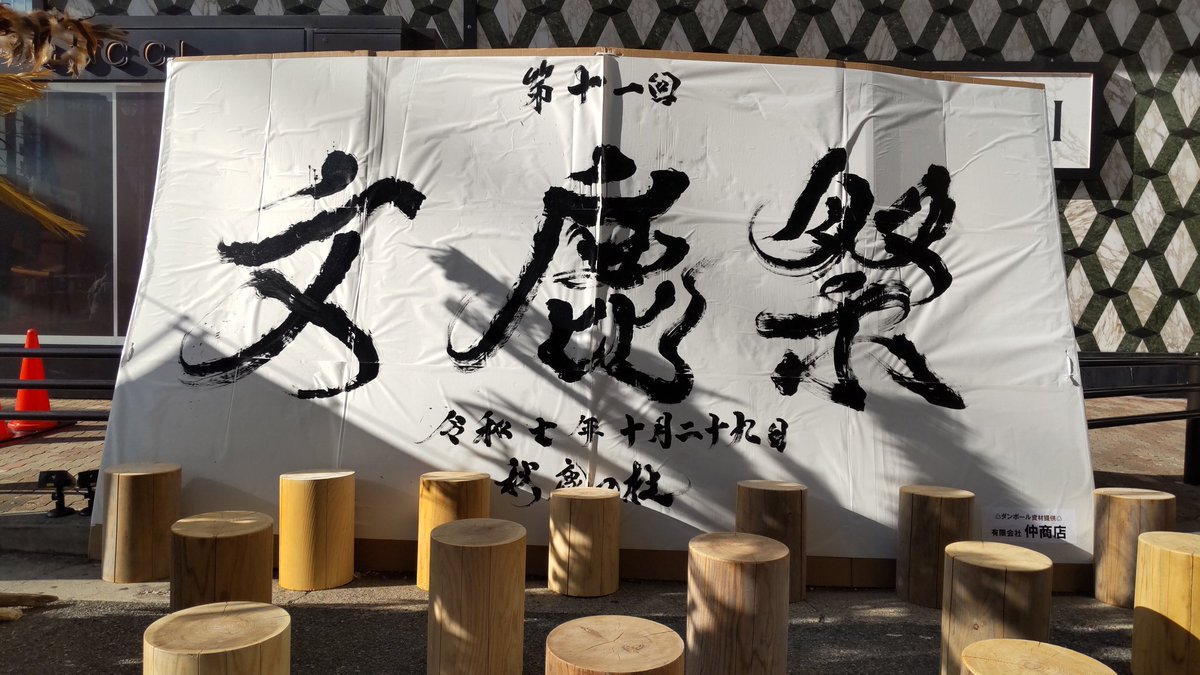 第十一回
文鹿祭
令和七年 十月二十九日
鹿の杜
ダンボール資材提供
有限会社 仲商店